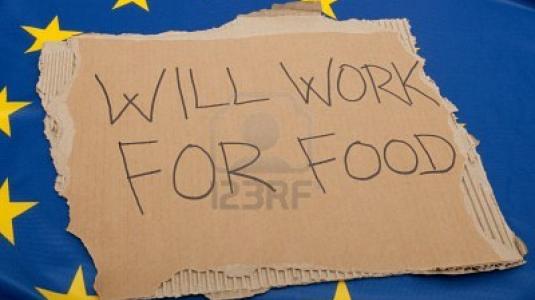 WILL WORK
FOR FOOD
123RF